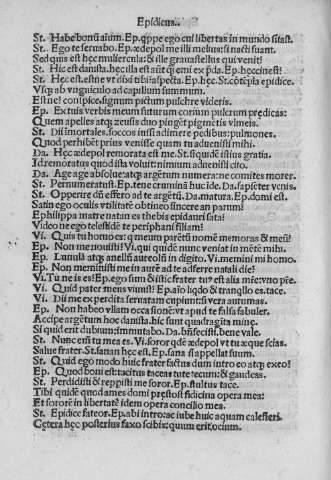 Epidicus.
St. Habe bonū aīum. Ep. qppe ego cui libertas in mundo sitast.
St. Ego te seruabo. Ep. ædepol me illi melius: si nacti suant.
Sed quis est hęc muliercula: & ille grauastellus qui venit?
St. Hic est danista. hęc illa est aūt q̄ emi ex p̄da. Ep. hęccinest?
St. Hęc est. estne vt dixi tibi? aspecta. Ep. hęc. St. cōtēpla epidice.
Vsq; ab vnguiculo ad capillum summum.
Estne? conspice. signum pictum pulchre videris.
Ep. Ex tuis verbis meum futurum corium pulcrum prędicas:
Quem apelles atq; zeusis duo pingēt pigmētis vlmeis.
St. Dii immortales. soccos iussi adimere pedibus: pulmones.
Quod perhibēt prius venisse quam tu aduenisti mihi.
Da. Hęc ædepol remorata est me. St. siquidē istius gratia.
Id remoratus quod ista voluit: nimium aduenisti cito.
Da. Age age absolue: atq; argētum numera: ne comites morer.
St. Pernumeratust. Ep. tene cruminā huc īde. Da. sapiēter venis.
St. Opperire dū effero ad te argētū. Da. matura. Ep. domi est.
Satin ego oculis vtilitatē obtineo sincere an parum?
Ephilippa matre natan es thebis epidauri sata?
Video ne ego telestidē te periphani filiam?
Vi. Quis tu homo es: q meum parētū nomē memoras & meū?
Ep. Non me nouisti? Vi. qui quidē nunc veniat in mētē mihi.
Ep. Lunulā atq; anellū aureolū in digito. Vi. memini mi homo.
Ep. Non meministi me in aurē ad te adferre natali die?
Vi. Tu ne is es? Ep. ego sum & istic frater tuꝰ est alia m̄e vno p̄re.
Vi. Quid pater meus viuus? Ep. aīo liqdo & tranqllo es. tace.
Vi. Dii me ex perdita seruatam cupiunt: si vera autumas.
Ep. Non habeo vllam occasionē: vt apud te falsa fabuler.
Accipe argētum hoc danista. hic sunt quadragīta minę.
Si quid erit dubium: immutabo. Da. bn̄fecisti. bene vale.
St. Nunc enī tu mea es. Vi. soror qdē ædepol vt tu æque scias.
Salue frater. St. sanan hęc est. Ep. sana si appellat suum.
St. Quid ego modo huic frater factus dum intro eo atq; exeo?
Ep. Quod boni est: tacitus taceas tute tecum: & gaudeas.
St. Perdidisti & reppisti me soror. Ep. stultus tace.
Tibi quidē quod ames domi pręstost fidicina opera mea:
Et sororē in libertatē idem opera concilio mea.
St. Epidice fateor. Ep. abi intro: ac iube huic aquam calefieri.
Cętera hęc posterius faxo scibis: quum erit ocium.